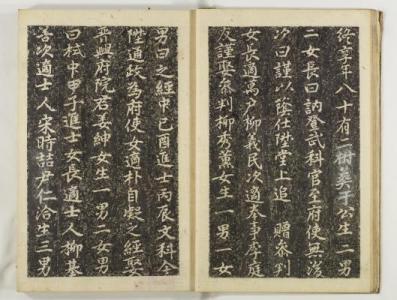 終享年八十有二祔葬于公生二男
二女長曰訥登武科官至府使無
次曰謹以蔭仕陞堂上追 贈參判
女長適萬戶柳義民次適奉事李庭
友謹娶參判柳秀薰女生一男二女
男曰之經中己酉進士丙辰文科今
陞通政為府使女適朴自凝之經娶
晉興府院君姜紳女生一男二女男
曰栻中甲子進士女長適士人柳基
善次適士人宋時喆尹仁洽生三男